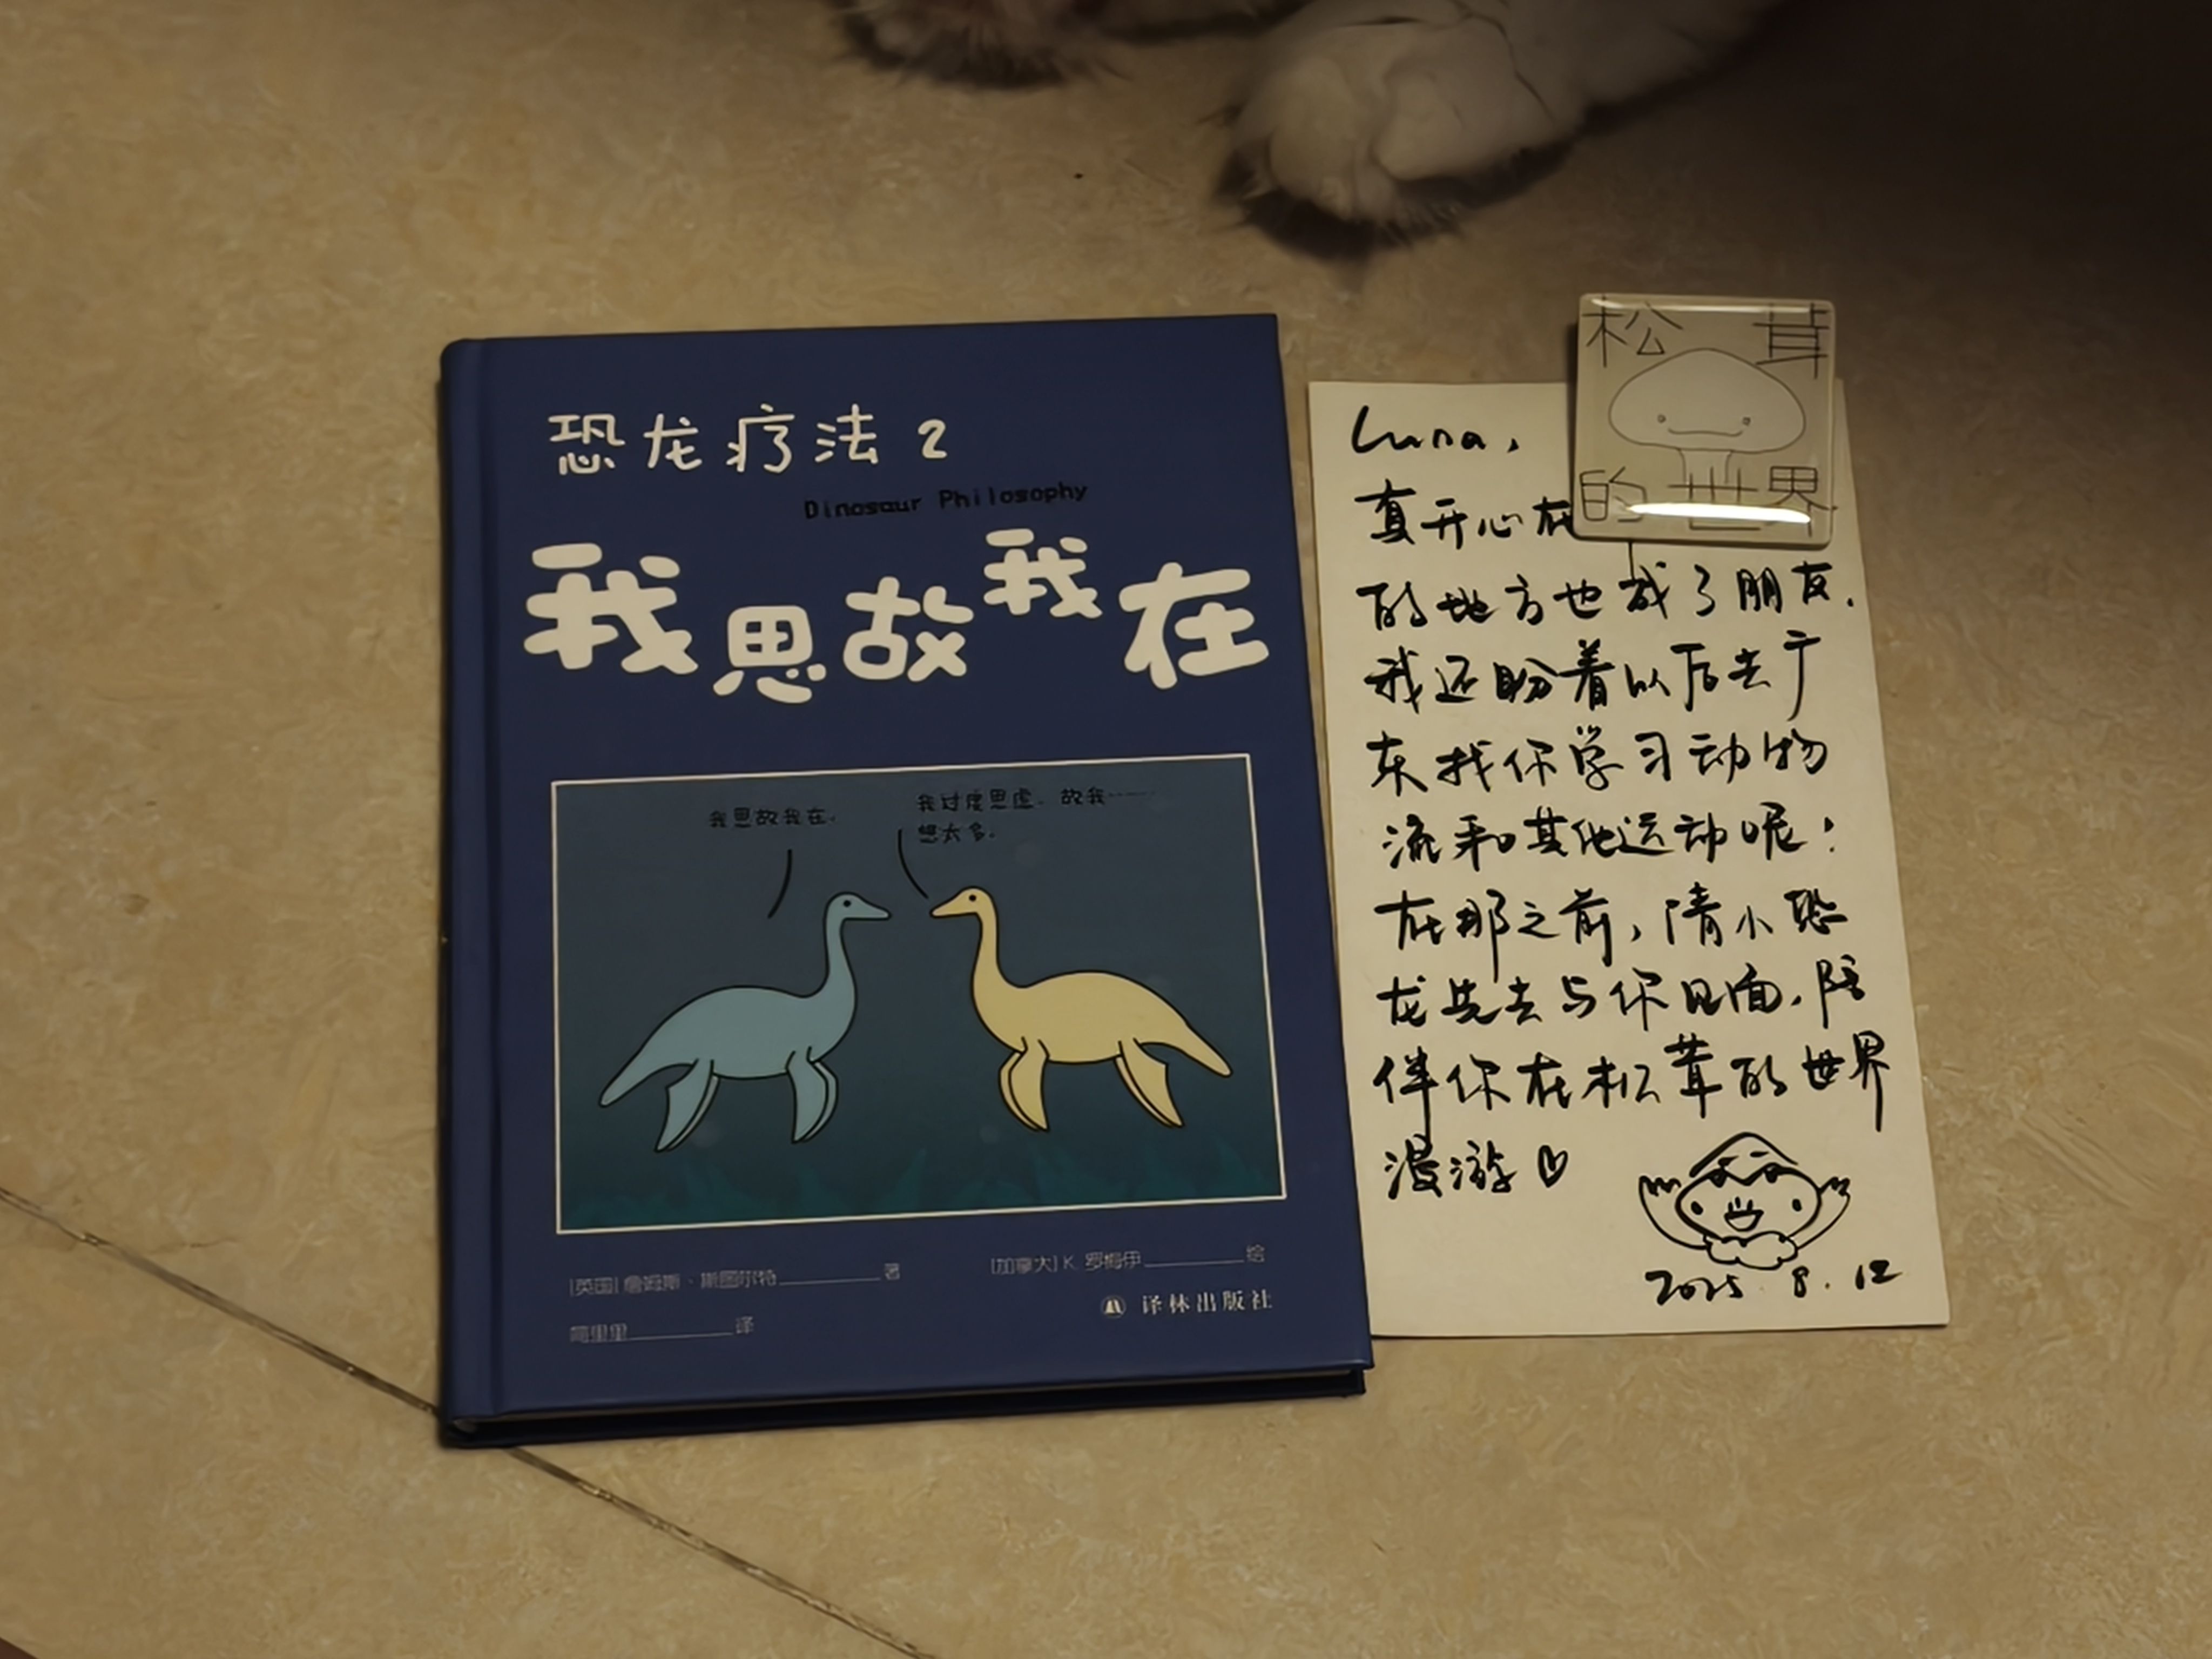 恐龙疗法 2
Dinosaur Philosophy
我思故我在
我思故我在。
我过度思虑，故我……
想太多。
[英国] 詹姆斯·斯图尔特 著
[加拿大] K. 罗梅伊 绘
简里里 译
译林出版社
松茸
的世界
Luna，
真开心在
的地方也成了朋友．
我还盼着以后去广
东找你学习动物
流和其他运动呢！
在那之前，请小恐
龙先去与你见面，陪
伴你在松茸的世界
漫游♡
2025.8.12